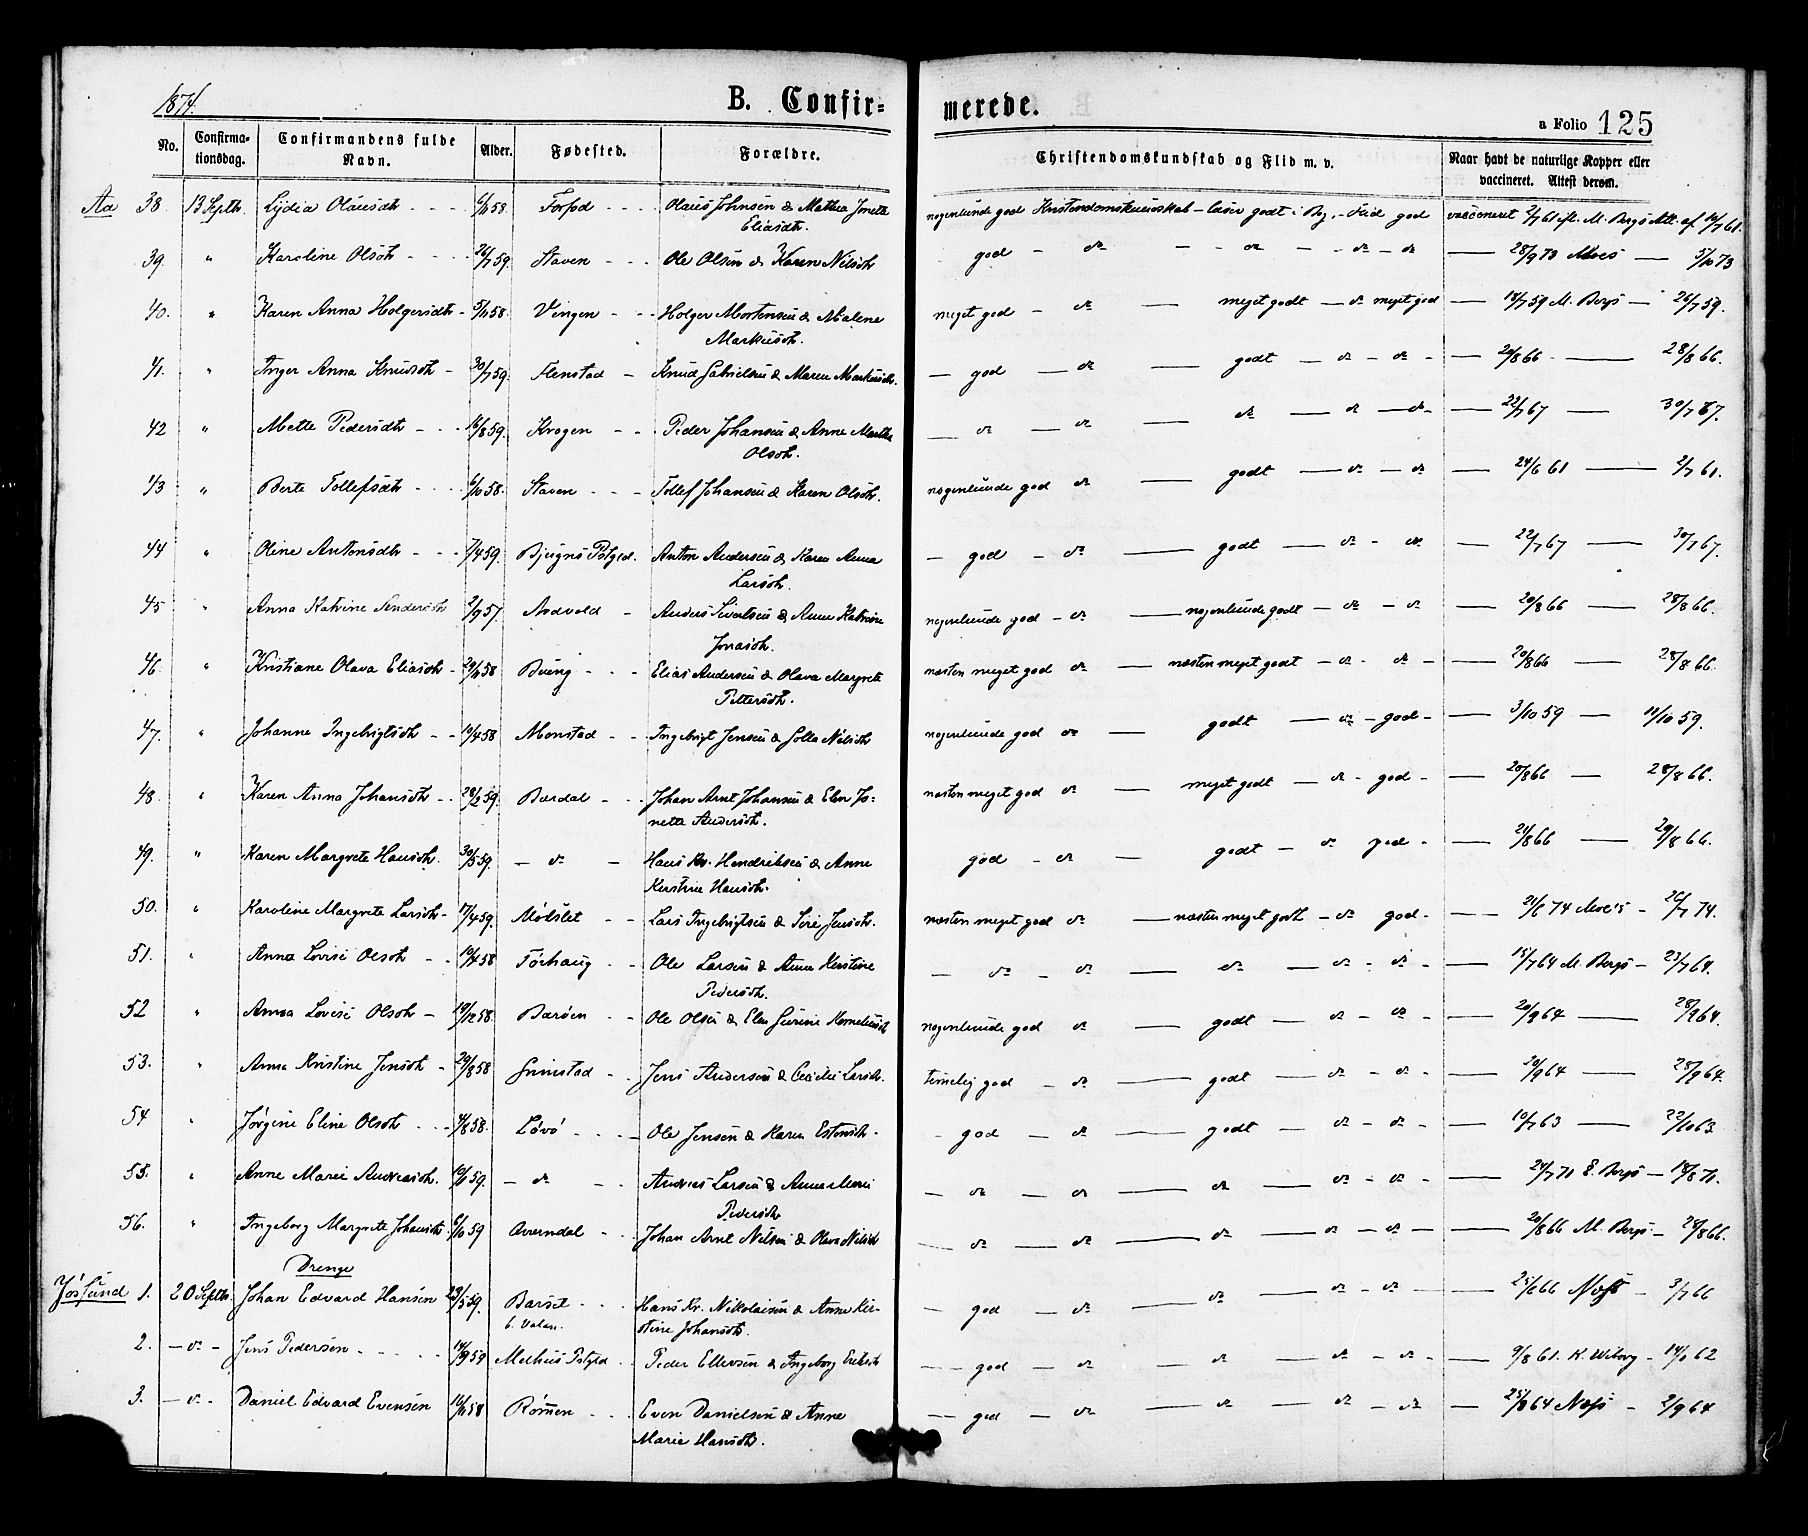 1874.
B. Confir= merede.
a Folio 125
No. Confirma-tionsdag. Confirmandens fulde Navn. Alder. Fødested. Forældre. Christendomskundskab og Flid m. v. Naar havt de naturlige Kopper eller vaccineret. Attest derom.
Aa 38. 13 Septb. Lydia Olausdtr - - - 58 Forfod - - - Olaus Johnsen & Mathea Jonetta nogenlunde god Kristendomskundskab - læser godt i Bog, - Flid god vaccineret 2/7 61 ifl. M. Bergs Att. af 14/7 61.
Eliasdtr.
39. " Karoline Olsdtr - - - 26/7 59. Staven - - - Ole Olsen & Karen Nilsdtr god - do - - do - - do - do - 28/9 73 Moes - 5/10 73
40. " Karen Anna Holgersdtr - 5/11 58. Vingen - - - Holger Mortensen & Malene meget god - do - meget godt - do meget god - 18/7 59 M. Bergs - 26/7 59.
Markusdtr.
41. " Inger Anna Knudsdtr - 30/7 59. Flenstad - Knud Gabrielsen & Maren Markusdtr. - god - do - godt - do - do - - 20/8 66 - 28/8 66.
42 " Mette Pedersdtr - - - 16/8 59. Krogen - - Peder Johansen & Anne Martha - do - do - do - do - do - - 22/7 67 - 30/7 67.
Olsdtr.
43 " Berte Tollefsdtr - - - 6/10 58. Staven - - - Tollef Johansen & Karen Olsdtr. nogenlunde god do - godt - do - do - 24/6 61 - 2/7 61.
44 " Oline Antonsdtr - - - 7/4 59. Bjugns Pstgd. Anton Andersen & Karen Anna - god - do - godt - do - do - 22/7 67 - 30/7 67.
Larsdtr.
45 " Anna Katrine Sendersdtr 2/9 57. Andvold - Anders Sivertsen & Anne Katrine nogenlunde god - do - nogenlunde godt - do - do - 20/8 66 - 28/8 66.
Jonasdtr.
46. " Kristiane Olava Eliasdtr - 58 - - - Elias Andersen & Olava Margrete næsten meget god do - næsten meget godt - do - do - - 20/8 66 - 28/8 66.
Pettersdtr.
47. " Johanne Ingebrigtsdtr - - 19/4 58 Monstad - - Ingebrigt Jensen & Nilsdtr nogenlunde god do - godt - do - god - - 3/10 59 - 11/10 59.
48. " Karen Anna Johansdtr - - 28/2 59. Bærdal - - - Johan Arnt Johansen & Elen Jo= næsten meget god do - meget godt - do - god - - 20/8 66 - 28/8 66.
nette Andersdtr.
49. " Karen Margrete Hansdtr. 30/5 59. - do - Hans Kr. Hendriksen & Anne god - do - godt - do god - - 21/8 66 - 29/8 66.
Kerstine Hansdtr.
50. " Karoline Margrete Larsdtr - 17/4 59. Mødslet - - Lars Ingebrigtsen & Siri Jensdtr. næsten meget god do - næsten meget godt - do god - - 21/6 74 Moe's - 26/7 74.
51. " Anna Lovise Olsdtr - 19/4 58 Torhaug - - Ole Larsen & Anne Kerstine - do - do - do - do - do - - 15/7 64 M. Bergs - 23/7 64.
Pedersdtr.
52 " Anna Lovise Olsdtr - 19/12 58. Barøen - - Ole Olsen & Elen Gurine Korneliusdtr nogenlunde god do - godt - do - do - - 20/9 64 - 28/9 64.
53. " Anna Kristine Jensdtr - 29/8 58 Grinstad - - Jens Andersen & Cecilie Larsdtr. temelig god - do - godt - do - do - - 20/9 64 - 28/9 64.
54 " Jørgine Eline Olsdtr - - - 4/8 58. Løvø - - - Ole Jensen & Karen Estensdtr - - god - do - godt - do - do - - 10/7 63 - 22/10 63
55. " Anne Marie Andreasdtr. 59. - do - - Andreas Larsen & Anne Marie - do - do - do - do - do - - 24/7 71 E. Bergs - 18/8 71.
Pedersdtr
56. " Ingeborg Margrete Johansdtr 6/10 59 Averndal - - - Johan Arnt Nilsen & Olava Nilsdtr - do - do - do - do - do - 20/8 66 M. Bergs - 28/8 66.
Drenge
Jøssund 1. 20 Septb. Johan Edvard Hansen 23/5 59. Barset - - - Hans Kr. Nikolaisen & Anne Kir- - god - do - do - do - do - 25/6 66 Næss - 3/7 66
t. Valan. stine Johansdtr.
2. - do - Jens Pedersen - - - - - 14/9 59 Melhus Pstgld - - Peder Ellevsen & Ingeborg Eriksdtr - god - do - do - do - do - 9/8 61. K. Wiborg - 62
3. - do - Daniel Edvard Evensen 16/11 58 Rømen - - - Even Danielsen & Anne - god - do - do - do - do - 25/8 64 Næss - 2/9 64
Marie Hansdtr.